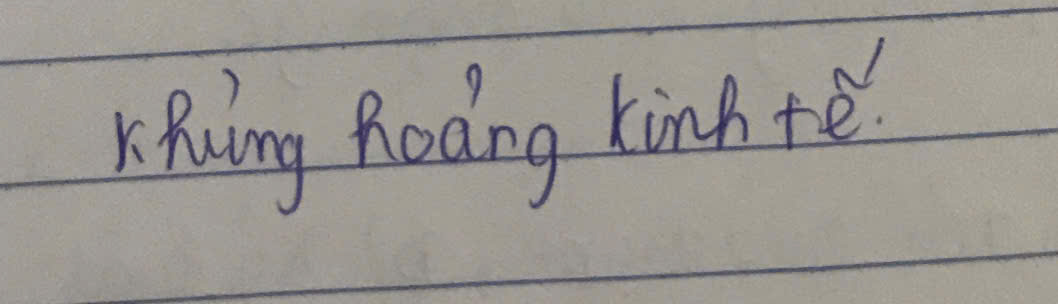 khủng hoảng kinh tế.